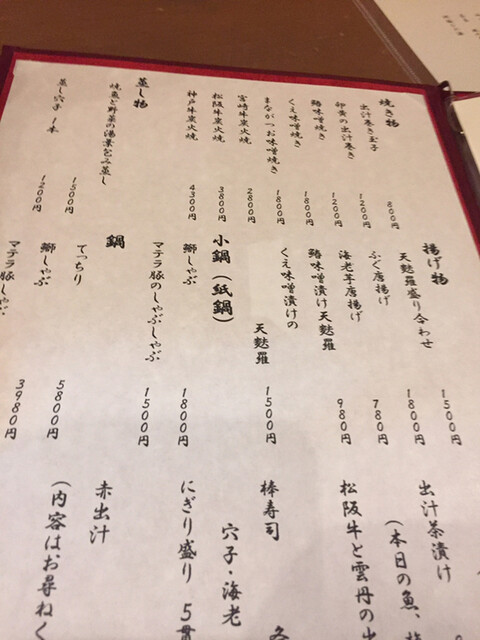 焼き物
出汁巻き玉子 800円
卵黄の出汁巻き 1200円
鰆味噌焼き 1200円
くえ味噌焼き 1800円
まながつお味噌焼き 1800円
宮崎牛炭火焼 2800円
松阪牛炭火焼 3800円
神戸牛炭火焼 4300円
蒸し物
焼魚と野菜の湯葉包み蒸し 1500円
蒸し穴子 1本 1200円
揚げ物
天麩羅盛り合わせ 1500円
ふぐ唐揚げ 1800円
海老芋唐揚げ 780円
鰆味噌漬け天麩羅 980円
くえ味噌漬けの
天麩羅 1500円
小鍋(紙鍋)
鰤しゃぶ 1800円
マテラ豚のしゃぶしゃぶ 1500円
鍋
てっちり 5800円
鰤しゃぶ 3980円
マテラ豚しゃぶ
出汁茶漬け
(本日の魚、
松阪牛と雲丹の
棒寿司
穴子・海老
にぎり盛り 5貫
赤出汁
(内容はお尋ねく